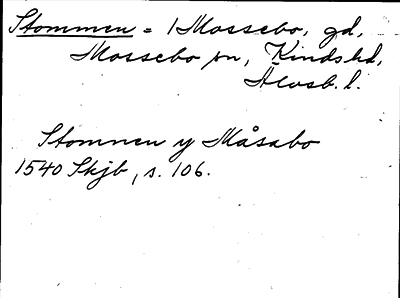 Stommen = 1 Mossebo, gd,
Mossebo sn, Kinds hd,
Älvsb. l.
Stommen y Måsabo
1540 Skjb, s. 106.